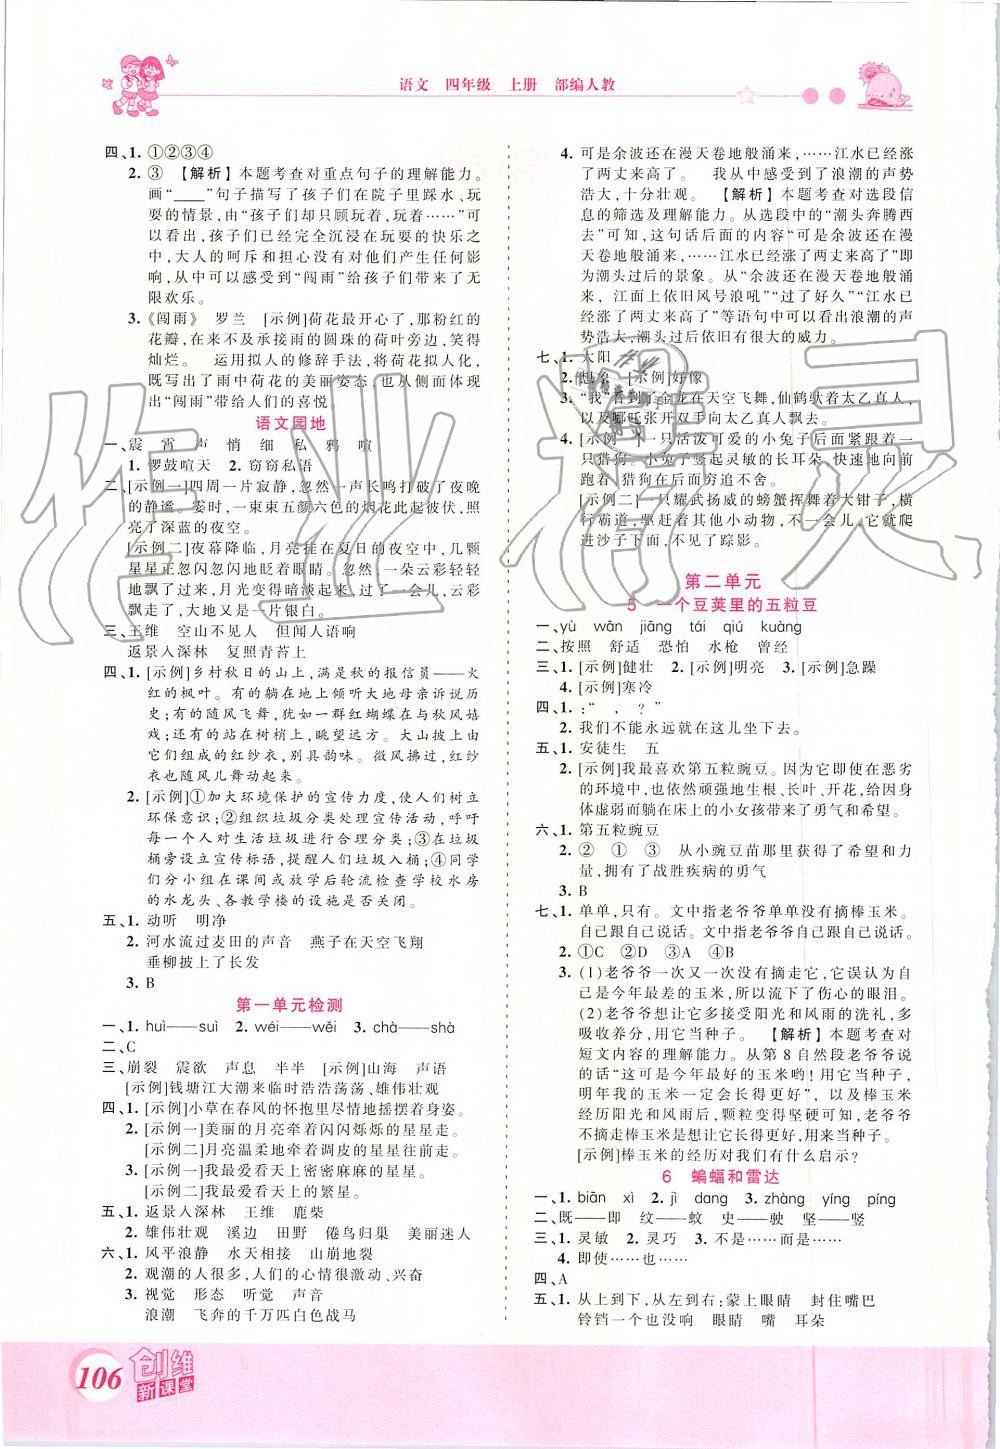 语文 四年级 上册 部编人教
四、1. ①②③④
2. ③ 【解析】本题考查对重点句子的理解能力。
画“____”句子描写了孩子们在院子里踩水、玩
耍的情景,由“孩子们却只顾玩着,玩着……”可
以看出,孩子们已经完全沉浸在玩耍的快乐之
中,大人的呵斥和担心没有对他们产生任何影
响,从中可以感受到“闯雨”给孩子们带来了无
限欢乐。
3.《闯雨》 罗兰 [示例]荷花最开心了,那粉红的
花瓣,在来不及承接雨的圆珠的荷叶旁边,笑得
灿烂。 运用拟人的修辞手法,将荷花拟人化,
既写出了雨中荷花的美丽姿态,也写出了
“闯雨”带给人们的喜悦。
语文园地
一、震 霄 声 悄 细 私 鸦 喧
1. 锣鼓喧天 2. 窃窃私语
二、[示例一]四周一片寂静,忽然一声长鸣打破了夜晚
的静谧。霎时,一束束五颜六色的烟花此起彼伏,照
亮了深蓝的夜空。
[示例二]夜幕降临,月亮挂在夏日的夜空中,几颗
星星正忽闪忽闪地眨着眼睛。忽然,一朵云彩轻轻
地飘来,月光变得暗淡起来。过了一会儿,云彩轻
轻飘走了,大地又是一片银白。
三、王维 空山不见人 但闻人语响
返景入深林 复照青苔上
四、1.[示例]乡村秋日的山上,满是秋的报信员——火
红的枫叶。有的躺在地上,倾听大地母亲诉说历
史;有的随风飞舞,犹如一群红蝴蝶在与秋风嬉
戏;还有的站在树梢上,眺望远方。大山披上由
它们组成的红纱衣,别具韵味。微风吹来,红纱
衣也随风儿舞动起来。
2.[示例]①加大环境保护的宣传力度,使人们树立
环保意识;②组织垃圾分类处理宣传活动,呼吁
每一个人对生活垃圾进行合理分类;③在垃圾
桶旁设立宣传标语,提醒人们分类投放;④同学
们分小组在课间或放学后轮流检查学校水房
的水龙头、各教学楼的设施是否关闭。
五、1. 动听 明净
2. 河水流过麦田的声音 燕子在天空飞翔
垂柳披上了长发
3. B
第一单元检测
一、1. huì——suì 2. wéi——wěi 3. chà——shà
二、C
三、崩裂 震欲 声息 半半 [示例]山海 声语
[示例]钱塘江大潮来临时浩浩荡荡、雄伟壮观
四、1.[示例]小草在春风的怀抱里尽情地摇摆着身姿。
2.[示例一]美丽的月亮牵着闪闪烁烁的星星走。
[示例二]月亮温柔地牵着调皮的星星往前走。
3.[示例一]我最爱看天上密密麻麻的星星。
[示例二]我最爱看天上的繁星。
五、1. 返景入深林 王维 鹿柴
2. 雄伟壮观 溪边 田野 倦鸟归巢 美丽迷人
六、1. 风平浪静 水天相接 山崩地裂
2. 观潮的人很多,人们的心情很激动、兴奋
3. 视觉 形态 听觉 声音
浪潮 飞奔的千万匹白色战马
4. 可是余波还在漫天卷地般涌来,……江水已经涨
了两丈来高了。 我从中感受到了浪潮的声势
浩大,十分壮观。 【解析】本题考查对选段信
息的筛选及理解能力。从选段中的“潮头奔腾西
去”可知,这句话后面的内容“可是余波还在漫
天卷地般涌来,……江水已经涨了两丈来高了”即
为潮头过后的景象。从“余波还在漫天卷地般涌
来,江面上依旧风号浪吼”“过了好久”“江水已经
涨了两丈来高了”等语句中可以看出浪潮的声
势浩大,潮头过后依旧有很大的威力。
七、1. 太阳
2. 想象 [示例]好像
3. “我”看到了金龙在天空飞舞,仙鹤驮着太乙真人,
以及哪吒张开双手向太乙真人飘去。
4. [示例一]一只活泼可爱的小兔子后面紧跟着一
只猎狗。小兔子竖起灵敏的长耳朵,快速地向前
跑着,猎狗在后面穷追不舍。
[示例二]一只耀武扬威的螃蟹挥舞着大钳子,横
行霸道,驱赶着其他小动物,不一会儿,它就爬
进沙子下面,不见了踪影。
第二单元
5 一个豆荚里的五粒豆
一、yù wān jiāng tái qiú kuàng
二、按照 舒适 恐怕 水枪 曾经
三、1.[示例]健壮 2.[示例]明亮 3.[示例]急躁
4.[示例]寒冷
四、1. :“ , ?”
2. 我们不能永远就在这儿坐下去。
五、1. 安徒生 五
2. [示例]我最喜欢第五粒豌豆。因为它即使在恶劣
的环境中,也依然顽强地生根、长叶、开花,并给
身体虚弱而躺在床上的小女孩带来了勇气和希望。
六、1. 第五粒豌豆
2. ② ① ③ 从小豌豆苗那里获得了希望和力
量,拥有了战胜疾病的勇气
3. B
七、1. 单单,只有。文中指老爷爷单单没有摘棒玉米。
自己跟自己说话。文中指老爷爷自己跟自己说话。
2. ①C ②D ③A ④B
3. (1)老爷爷一次又一次没有摘走它,它误认为自
己是今年最差的玉米,所以流下了伤心的眼泪。
(2)老爷爷想让它多接受阳光和风雨的洗礼,多
吸收养分,用它当种子。 【解析】本题考查对
短文内容的理解能力。从第8自然段老爷爷说
的话“这可是今年最好的玉米哟!用它当种子,
明年我们种出比它更棒的玉米”,以及棒玉米
经历阳光和风雨后,颗粒变得坚硬可知,老爷爷
不摘走棒玉米是想用它当种子。
[示例]棒玉米的经历对我们有什么启示?
6 蝙蝠和雷达
一、1. biān xì 2. jì dang 3. zhàng yíng píng
二、既——即 纹——蚊 史——驶 坚——竖
三、1. 灵敏 2. 灵巧 3. 不是……而是……
4. 即使……也……
四、A
五、1. 从上到下,从左到右:蒙上眼睛 封住嘴巴
铃铛一个也没响 眼睛 嘴 耳朵
106
创维
新课堂
作业精灵